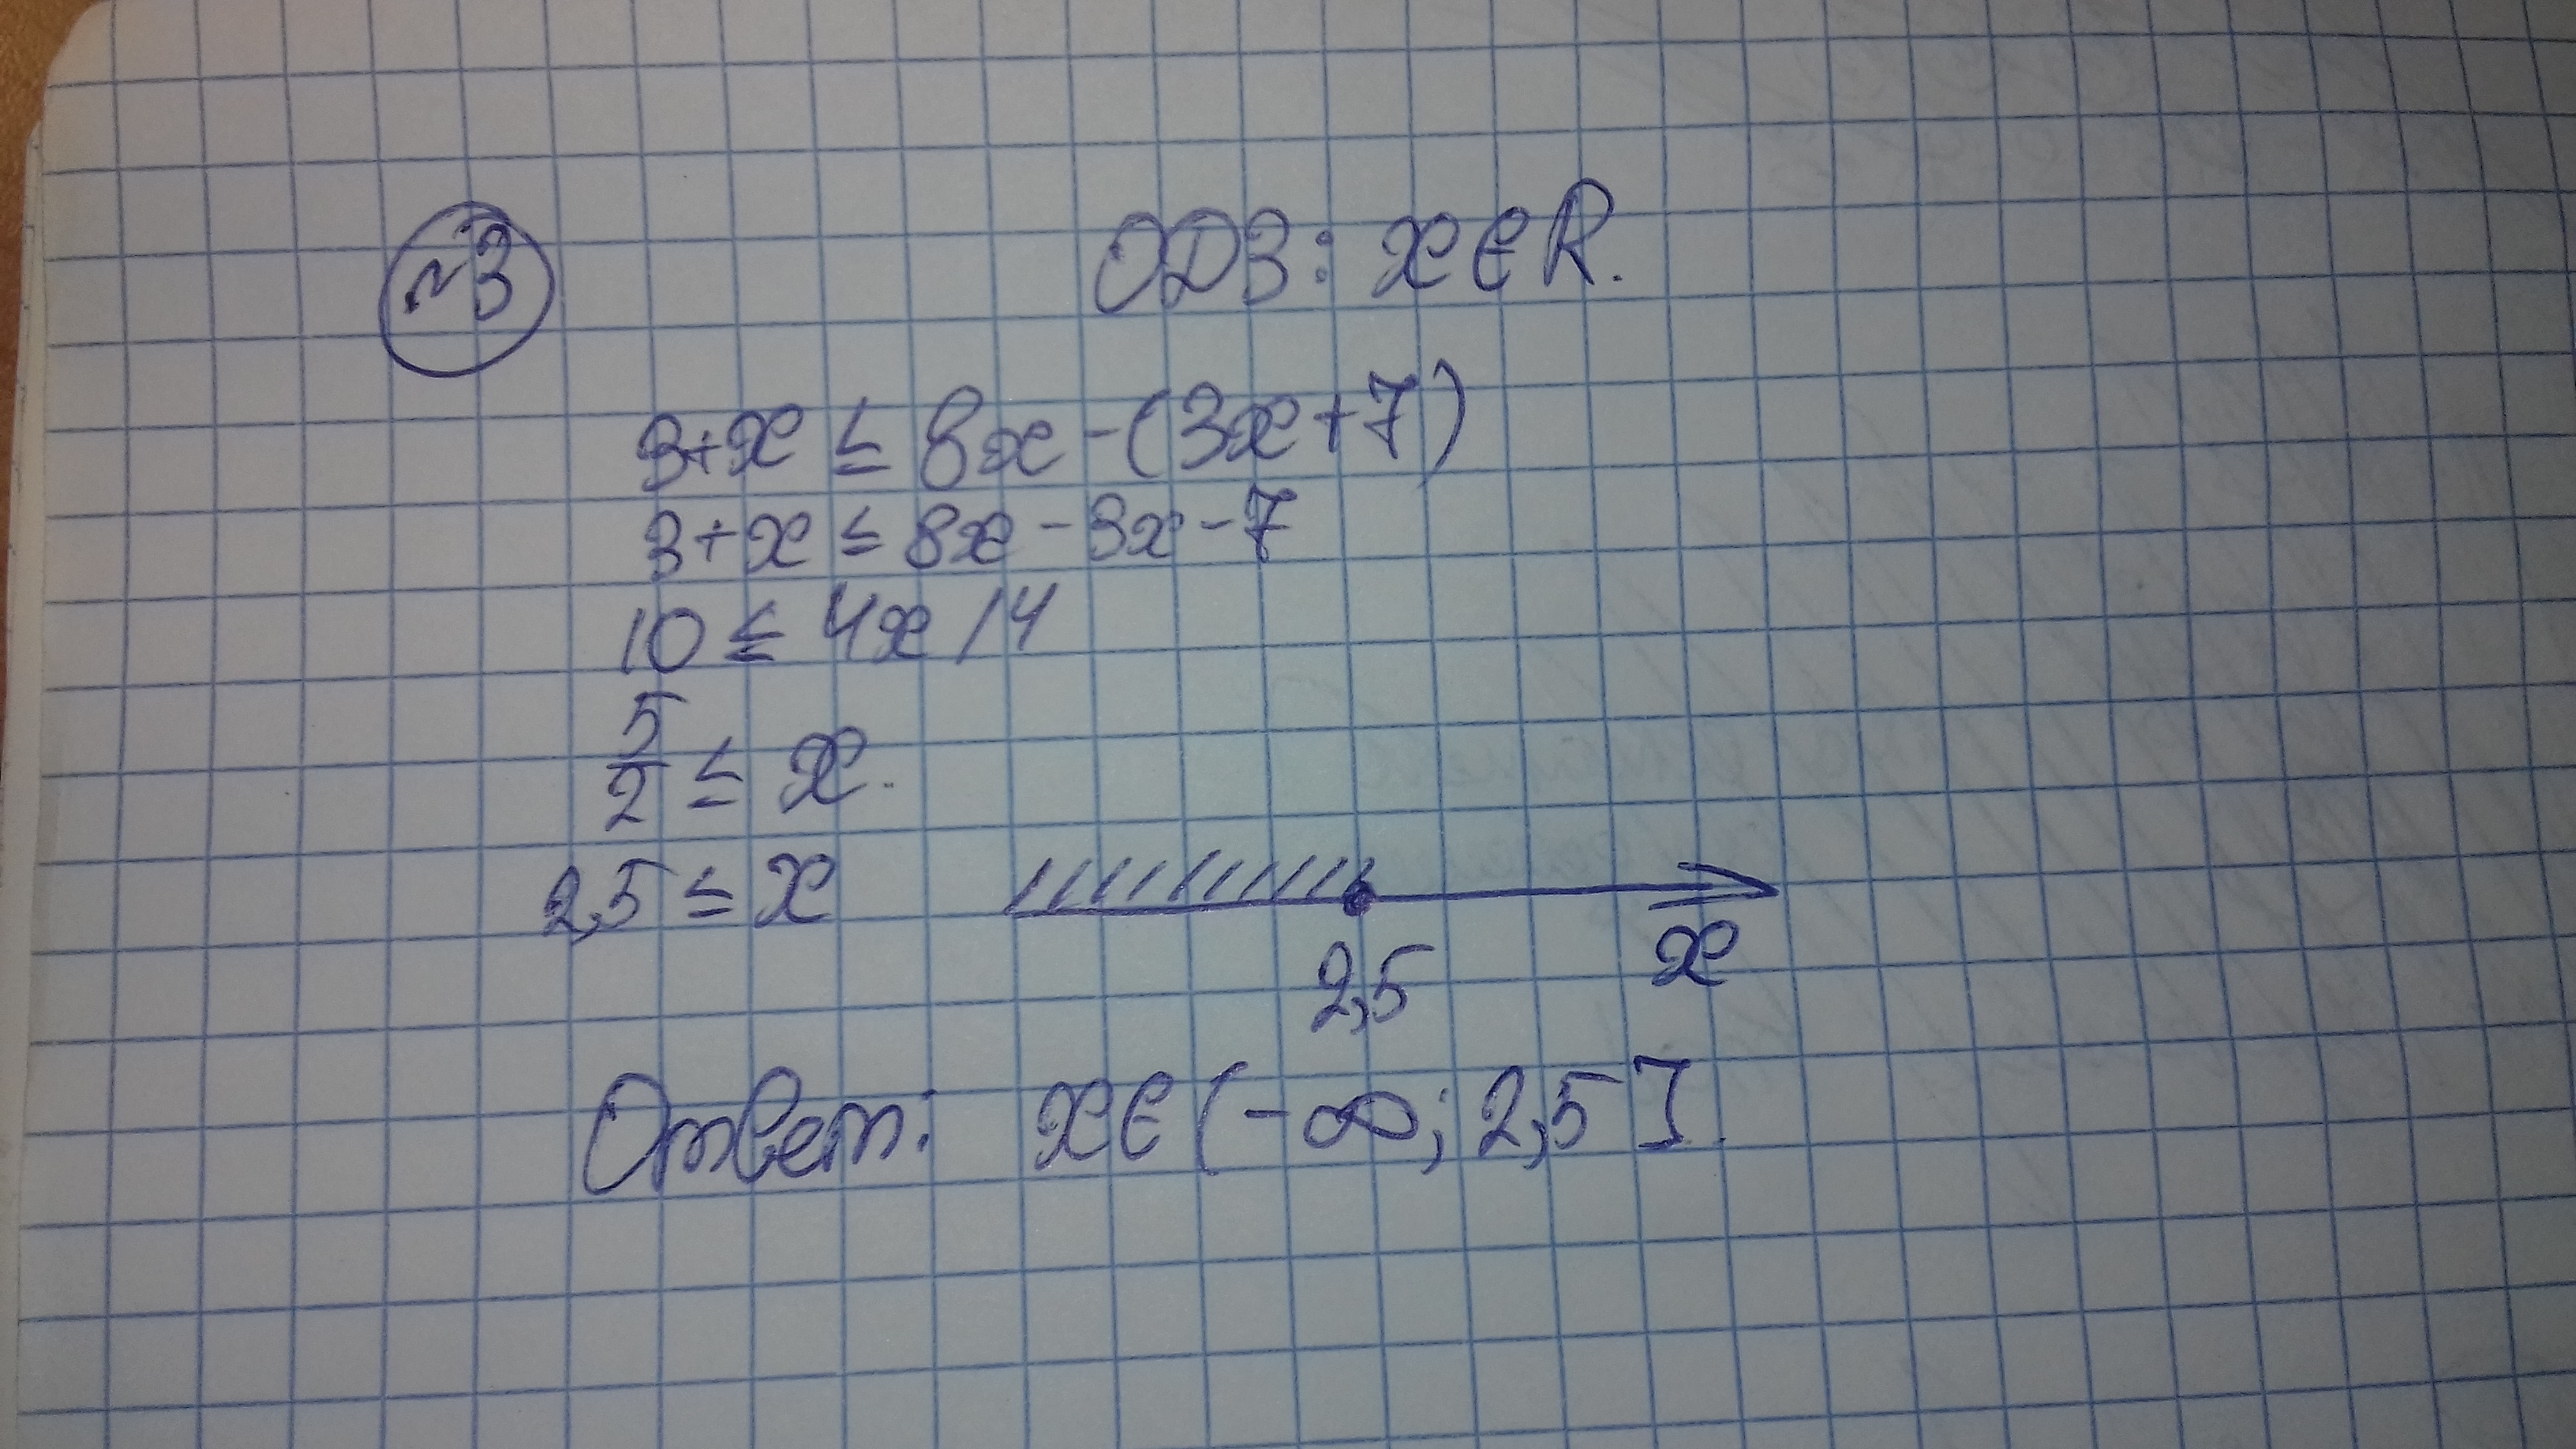 №3
ОДЗ: x∈R.
3+x ≤ 8x-(3x+7)
3+x ≤ 8x-3x-7
10 ≤ 4x /4
5/2 ≤ x.
2,5 ≤ x
2,5
x
Ответ: x∈(-∞; 2,5].